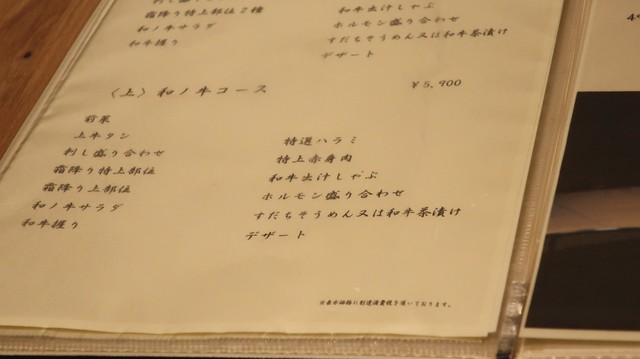 霜降り特上部位2種
和ノ牛サラダ
和牛握り
和牛出汁しゃぶ
ホルモン盛り合わせ
すだちそうめん又は和牛茶漬け
デザート
〈上〉和ノ牛コース ￥5,900
前菜
上牛タン
刺し盛り合わせ
霜降り特上部位
霜降り上部位
和ノ牛サラダ
和牛握り
特選ハラミ
特上赤身肉
和牛出汁しゃぶ
ホルモン盛り合わせ
すだちそうめん又は和牛茶漬け
デザート
※表示価格に別途消費税を頂いております。